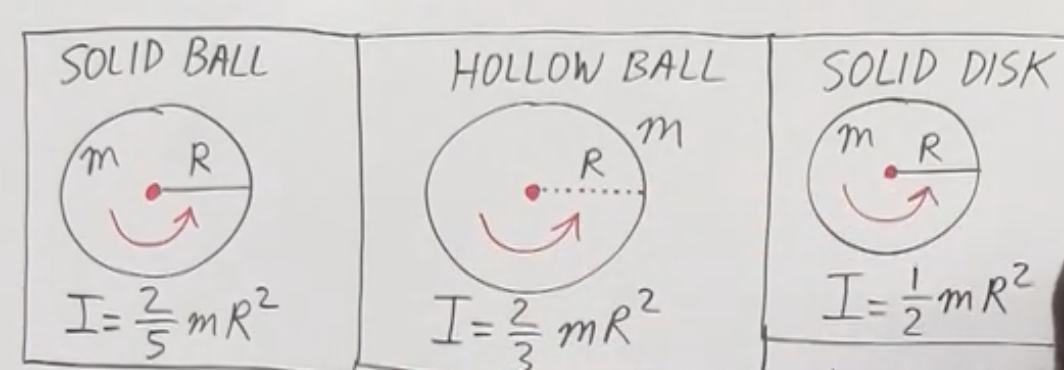 SOLID BALL
m R
I = 2/5 mR²
HOLLOW BALL
m
R
I = 2/3 mR²
SOLID DISK
m R
I = 1/2 mR²